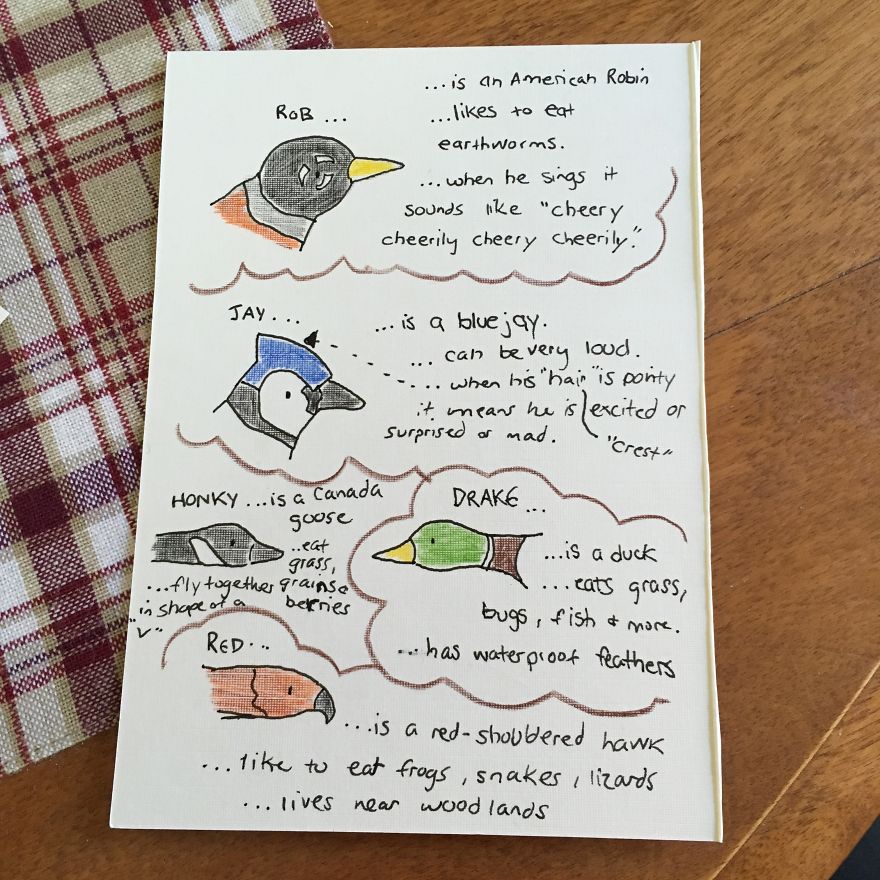 ROB ...
...is an American Robin
...likes to eat
earthworms.
...when he sings it
sounds like "cheery
cheerily cheery cheerily."
JAY ...
...is a bluejay.
... can be very loud.
... when his "hair" is pointy
it means he is excited or
surprised or mad.
"crest"
HONKY ...is a Canada
goose
...eat
grass,
grains &
berries
...fly together
"in shape of a
V"
DRAKE ...
...is a duck
...eats grass,
bugs, fish & more.
...has waterproof feathers
RED ...
...is a red-shouldered hawk
...like to eat frogs, snakes, lizards
...lives near woodlands